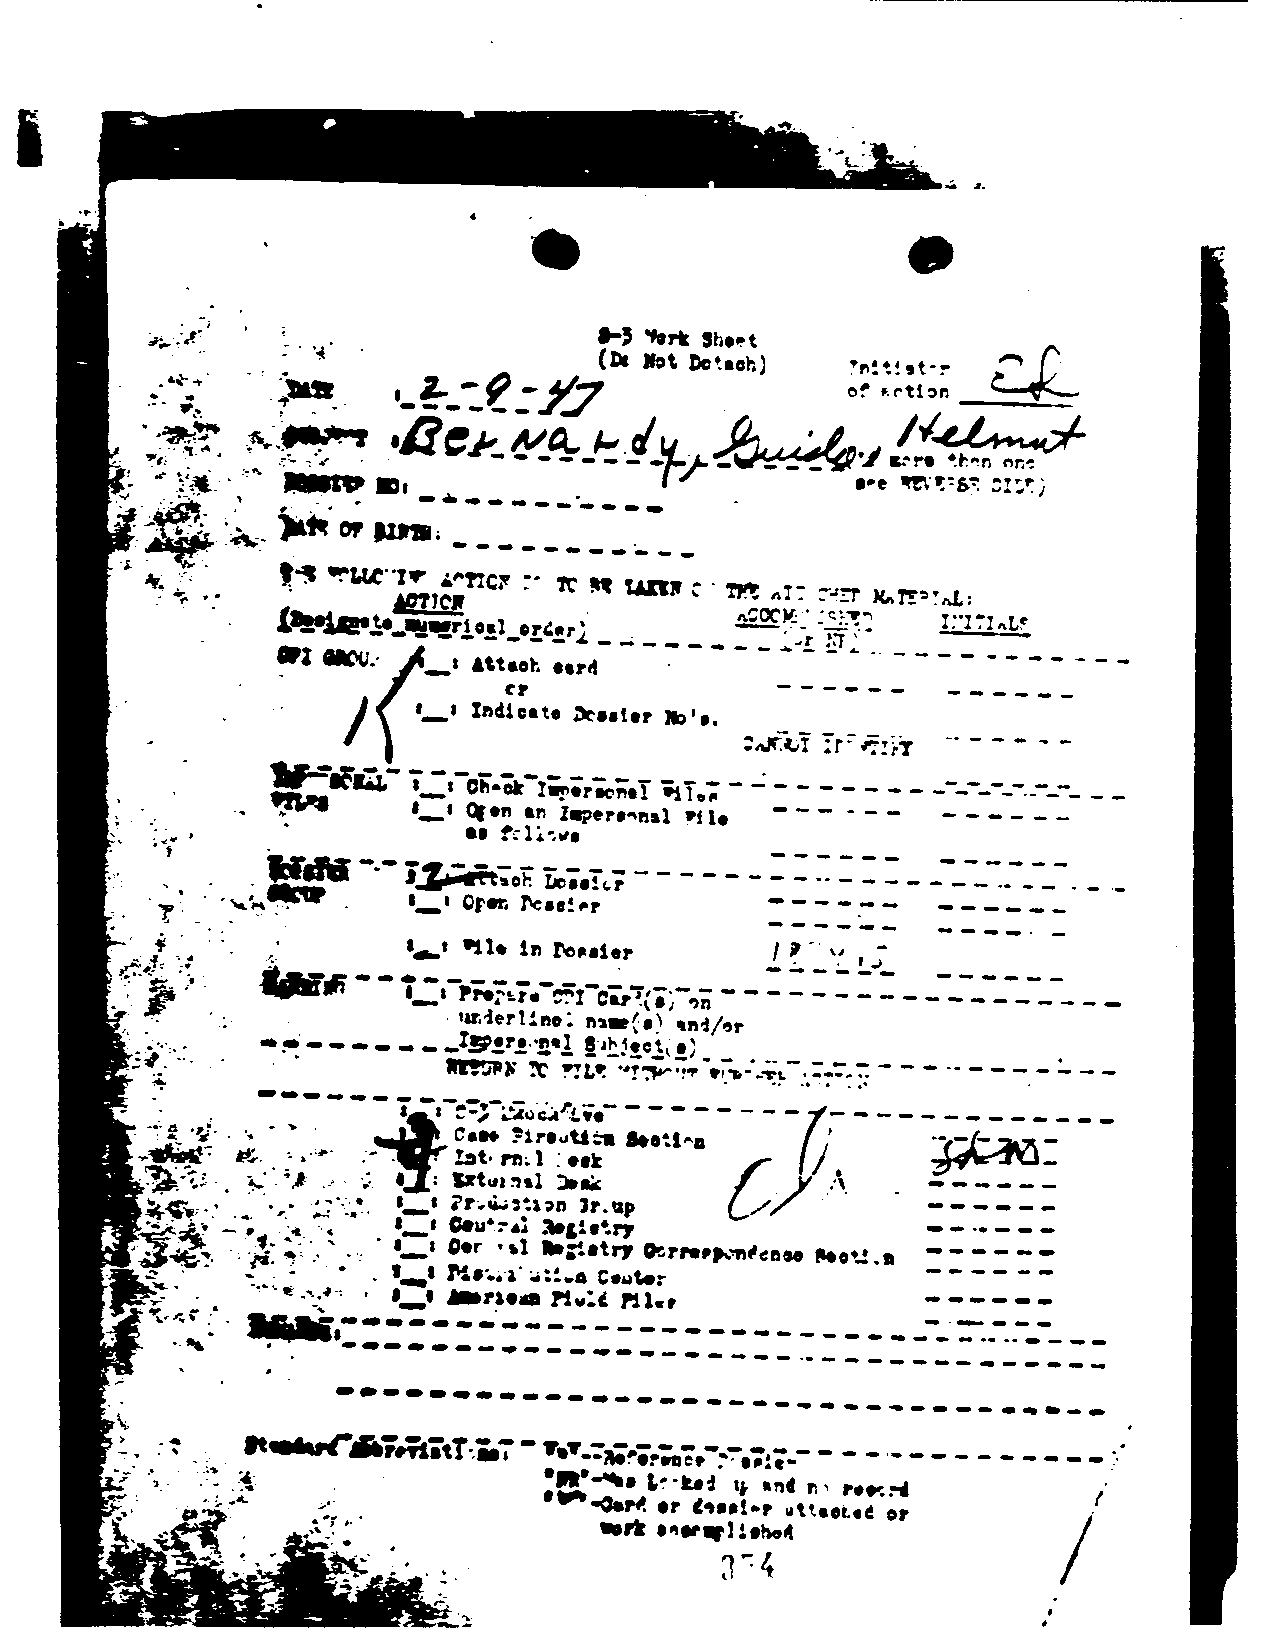 Work Sheet
(Do Not Detach)
Initiator
of action
DATE : 2-9-47
SUBJECT : Bernardy, Guido, Helmut
more than one
see REVERSE SIDE)
DOSSIER NO:
DATE OF BIRTH:
FOLLOWING ACTION IS TO BE TAKEN ON THE ATTACHED MATERIAL:
ACTION ACCOMPLISHED INITIALS
(Designate numerical order) (or NR)
GROUP :__: Attach card
or
:__: Indicate Dossier No's.
CANNOT IDENTIFY
IMPERSONAL :__: Check Impersonal Files
FILES :__: Open an Impersonal File
as follows
DOSSIER Attach Dossier
GROUP :__: Open Dossier
:__: File in Dossier
:__: Prepare Card(s) on
underlined name(s) and/or
Impersonal Subject(s)
RETURN TO FILE WITHOUT FURTHER ACTION
:__: Executive
Case Direction Section
Internal Desk
External Desk
:__: Production Group
:__: Central Registry
:__: Central Registry Correspondence Section
:__: Distribution Center
:__: American Field Files
Standard Abbreviations: Reference
"NR"-Was Looked up and no record
-Card or dossier attached or
work accomplished